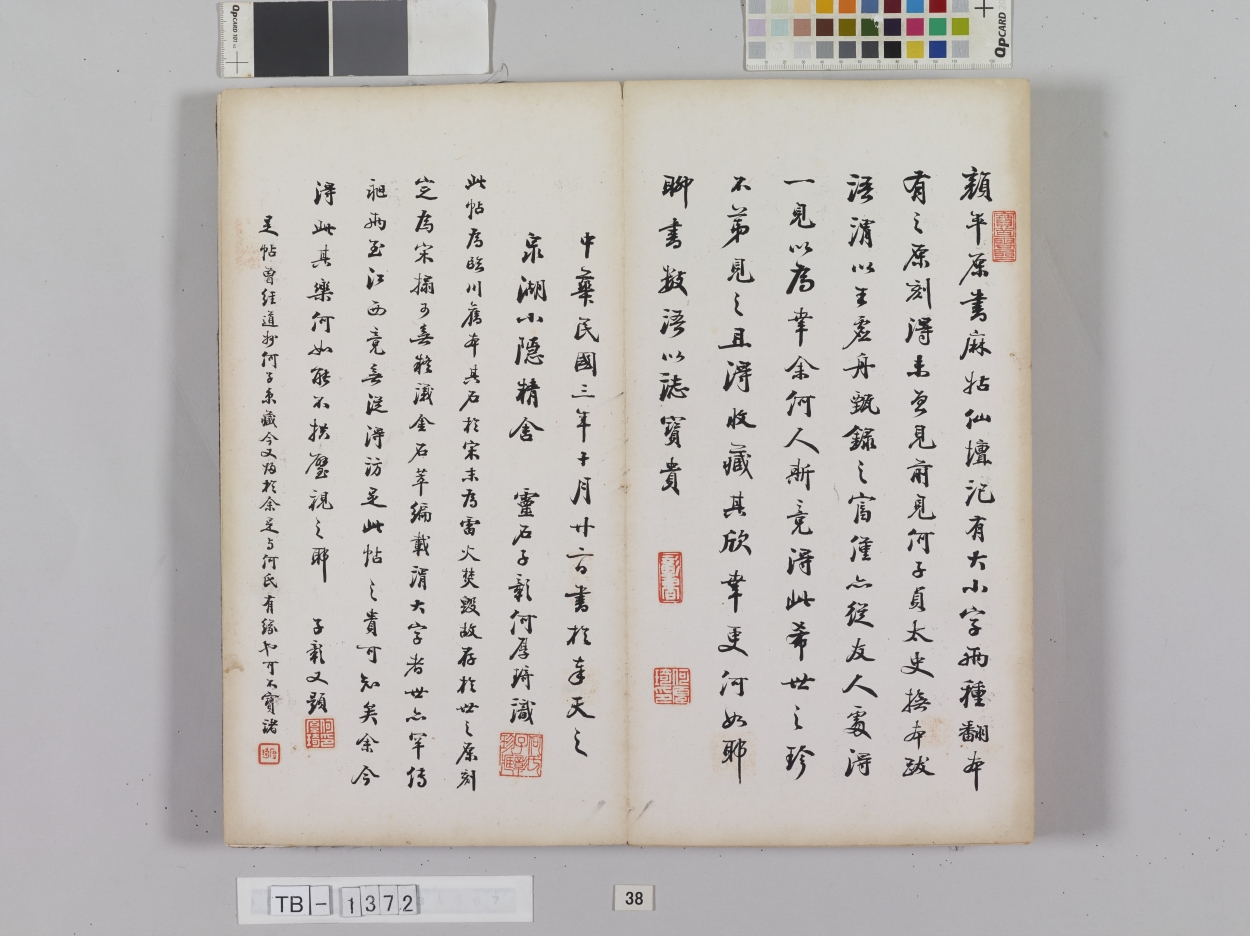 顏平原書麻姑仙壇記有大小字兩種翻本
有之原刻得未曾見前見何子貞太史撫本跋
語謂以王虛舟甄錄之富僅亦從友人處得
一見以為幸余何人斯竟得此希世之珍
不第見之且得收藏其欣幸更何如耶
聊書數語以誌寶貴
中華民國三年十月廿六日書於奉天之
泉湖小隱精舍　靈石子彰何厚琦識
此帖為臨川舊本其石於宋末為雷火焚毀故存於世之原刻
定為宋搨可無疑議金石萃編載謂大字者世亦罕傳
兩至江西竟無從得訪是此帖之貴可知矣余今
得此其樂何如能不拱璧視之耶　子彰又題
是帖曾經道州何子貞藏今又歸於余是與何氏有緣也可不寶諸
TB-1372
38
QPCARD 101
QPCARD